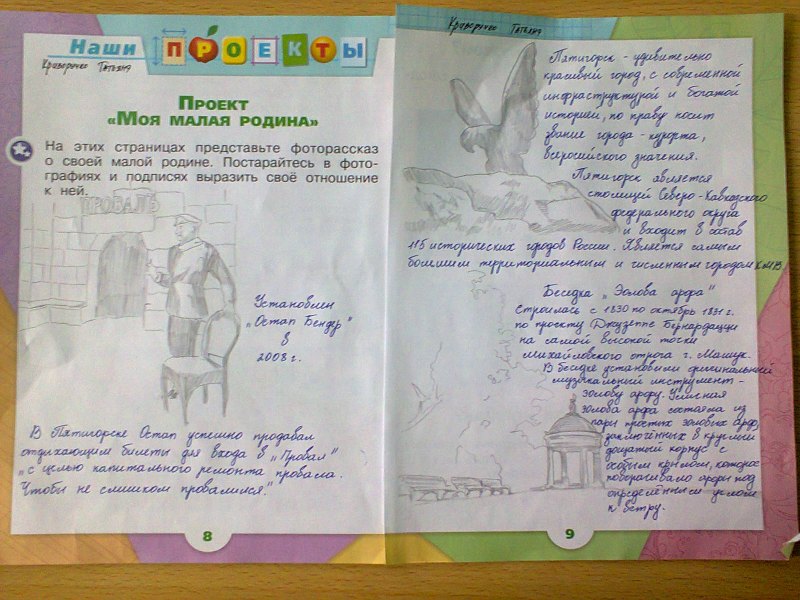 Наши ПРОЕКТЫ
Криворучко Татьяна
ПРОЕКТ
«МОЯ МАЛАЯ РОДИНА»
На этих страницах представьте фоторассказ
о своей малой родине. Постарайтесь в фото-
графиях и подписях выразить своё отношение
к ней.
ПРОВАЛЪ
Установлен
„Остап Бендер"
в
2008 г.
В Пятигорске Остап успешно продавал
отдыхающим билеты для входа в „Провал"
„с целью капитального ремонта провала.
Чтобы не слишком провалился."
8
Криворучко Татьяна
Пятигорск - удивительно
красивый город, с современной
инфраструктурой и богатой
историей, по праву носит
звание города - курорта,
всеросийского значения.
Пятигорск является
столицей Северо-Кавказского
федерального округа
и входит в состав
115 исторических городов России. Является самым
большим территориальным и численным городом КМВ
Беседка „Эолова арфа"
Строилась с 1830 по октябрь 1831 г.
по проекту Джузеппе Бернардацци
на самой высокой точки
Михайловского отрога г. Машук.
В беседке установили оригинальный
музыкальный инструмент -
эолову арфу.
эолова арфа состояла из
пары простых эоловых арф,
заключённых в круглый
дощатый корпус с
особым крылом, которое
поворачивало арфы под
определённым углом
к ветру.
9